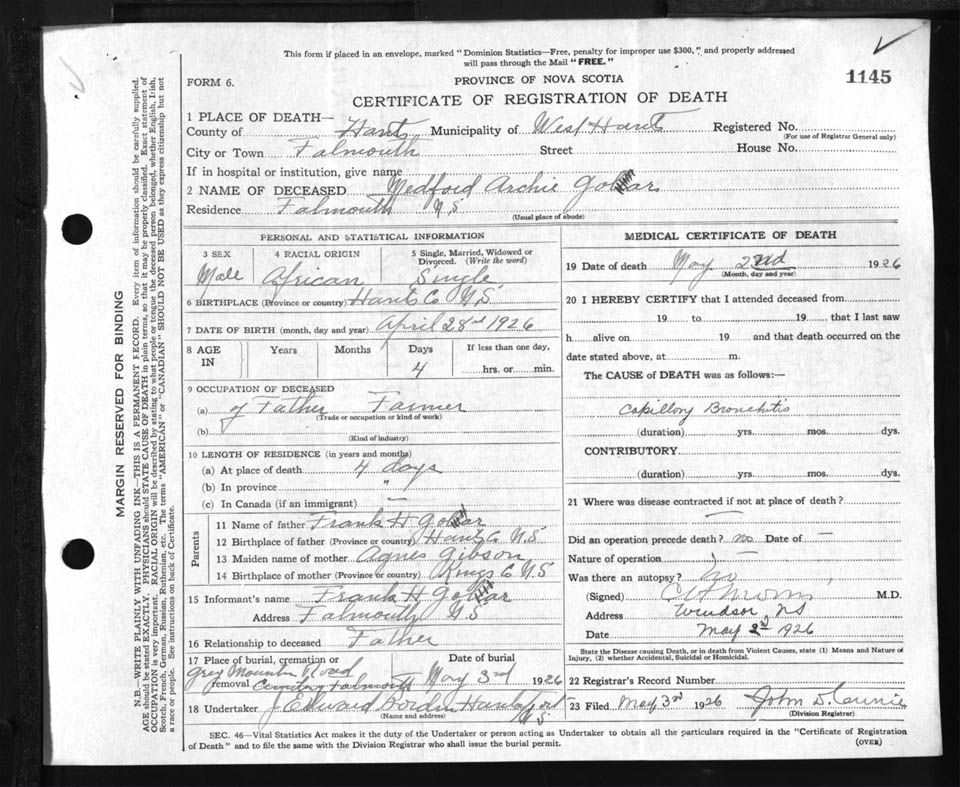 This form if placed in an envelope, marked "Dominion Statistics—Free, penalty for improper use $300," and properly addressed
will pass through the Mail "FREE."
1145
FORM 6.
PROVINCE OF NOVA SCOTIA
CERTIFICATE OF REGISTRATION OF DEATH
1 PLACE OF DEATH—
County of Hants Municipality of West Hants Registered No.
(For use of Registrar General only)
City or Town Falmouth Street House No.
If in hospital or institution, give name
2 NAME OF DECEASED Medford Archie
Residence Falmouth N.S
(Usual place of abode)
PERSONAL AND STATISTICAL INFORMATION
3 SEX 4 RACIAL ORIGIN 5 Single, Married, Widowed or Divorced. (Write the word)
Male African Single
6 BIRTHPLACE (Province or country) Hants Co N.S
7 DATE OF BIRTH (month, day and year) April 28th 1926
8 AGE IN Years Months Days If less than one day,
4 hrs. or min.
9 OCCUPATION OF DECEASED
(a) of Father Farmer
(Trade or occupation or kind of work)
(b)
(Kind of industry)
10 LENGTH OF RESIDENCE (in years and months)
(a) At place of death 4 days
(b) In province "
(c) In Canada (if an immigrant) —
Parents
11 Name of father Frank H
12 Birthplace of father (Province or country) Hants Co N.S
13 Maiden name of mother Agnes Gibson
14 Birthplace of mother (Province or country) Kings Co N.S
15 Informant's name Frank H
Address Falmouth N.S
16 Relationship to deceased Father
17 Place of burial, cremation or removal Date of burial
Grey Mountain Road
Cemetery Falmouth May 3rd 1926
18 Undertaker Edward Borden Hantsport
N.S
(Name and address)
MEDICAL CERTIFICATE OF DEATH
19 Date of death May 2nd 1926
(Month, day and year)
20 I HEREBY CERTIFY that I attended deceased from
19 to 19 that I last saw
h alive on 19 and that death occurred on the
date stated above, at m.
The CAUSE of DEATH was as follows:—
Capillary Bronchitis
(duration) yrs. mos. dys.
CONTRIBUTORY
(duration) yrs. mos. dys.
21 Where was disease contracted if not at place of death?
—
Did an operation precede death? no Date of —
Nature of operation
Was there an autopsy? no
(Signed) M.D.
Address Windsor NS
Date May 2d 1926
State the Disease causing Death, or in death from Violent Causes, state (1) Means and Nature of
Injury, (2) whether Accidental, Suicidal or Homicidal.
22 Registrar's Record Number
23 Filed May 3rd 1926 John D.
(Division Registrar)
SEC. 46—Vital Statistics Act makes it the duty of the Undertaker or person acting as Undertaker to obtain all the particulars required in the "Certificate of Registration
of Death" and to file the same with the Division Registrar who shall issue the burial permit.
(OVER)
MARGIN RESERVED FOR BINDING
N.B.—WRITE PLAINLY WITH UNFADING INK—THIS IS A PERMANENT RECORD. Every item of information should be carefully supplied.
AGE should be stated EXACTLY. PHYSICIANS should STATE CAUSE OF DEATH in plain terms, so that it may be properly classified. Exact statement of
OCCUPATION is very important. RACIAL ORIGIN will be described by stating to what people or tongue the deceased person belonged, whether English, Irish,
Scotch, French, German, Russian, Ruthenian, etc. The terms "AMERICAN" or "CANADIAN" SHOULD NOT BE USED as they express citizenship but not
a race or people. See instructions on back of Certificate.